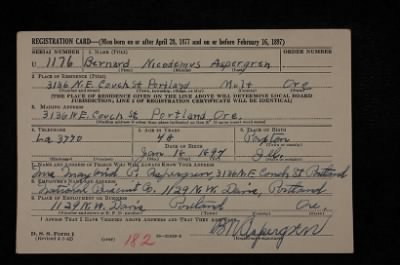 REGISTRATION CARD—(Men born on or after April 28, 1877 and on or before February 16, 1897)
SERIAL NUMBER 1. NAME (Print) ORDER NUMBER
U 1176 Bernard Nicodemus Aspergren
(First) (Middle) (Last)
2. PLACE OF RESIDENCE (Print)
3136 N.E. Couch St Portland Mult Ore
(Number and street) (Town, township, village, or city) (County) (State)
[THE PLACE OF RESIDENCE GIVEN ON THE LINE ABOVE WILL DETERMINE LOCAL BOARD
JURISDICTION; LINE 2 OF REGISTRATION CERTIFICATE WILL BE IDENTICAL]
3. MAILING ADDRESS
3136 N.E. Couch St Portland Ore.
[Mailing address if other than place indicated on line 2. If same insert word same]
4. TELEPHONE 5. AGE IN YEARS 6. PLACE OF BIRTH
La 3770 48 Paxton
DATE OF BIRTH (Town or county)
Jan 18 1894 Ill.
(Exchange) (Number) (Mo.) (Day) (Yr.) (State or country)
7. NAME AND ADDRESS OF PERSON WHO WILL ALWAYS KNOW YOUR ADDRESS
Mrs P. Aspergren, 3136 N.E. Couch St Portland
8. EMPLOYER'S NAME AND ADDRESS
National Biscuit Co, 1129 N.W. Davis, Portland
9. PLACE OF EMPLOYMENT OR BUSINESS
1129 N.W. Davis Portland Ore.
(Number and street or R. F. D. number) (Town) (County) (State)
I AFFIRM THAT I HAVE VERIFIED ABOVE ANSWERS AND THAT THEY ARE TRUE.
D. S. S. Form 1
(Revised 4-1-42) (over) 182 B N Aspergren